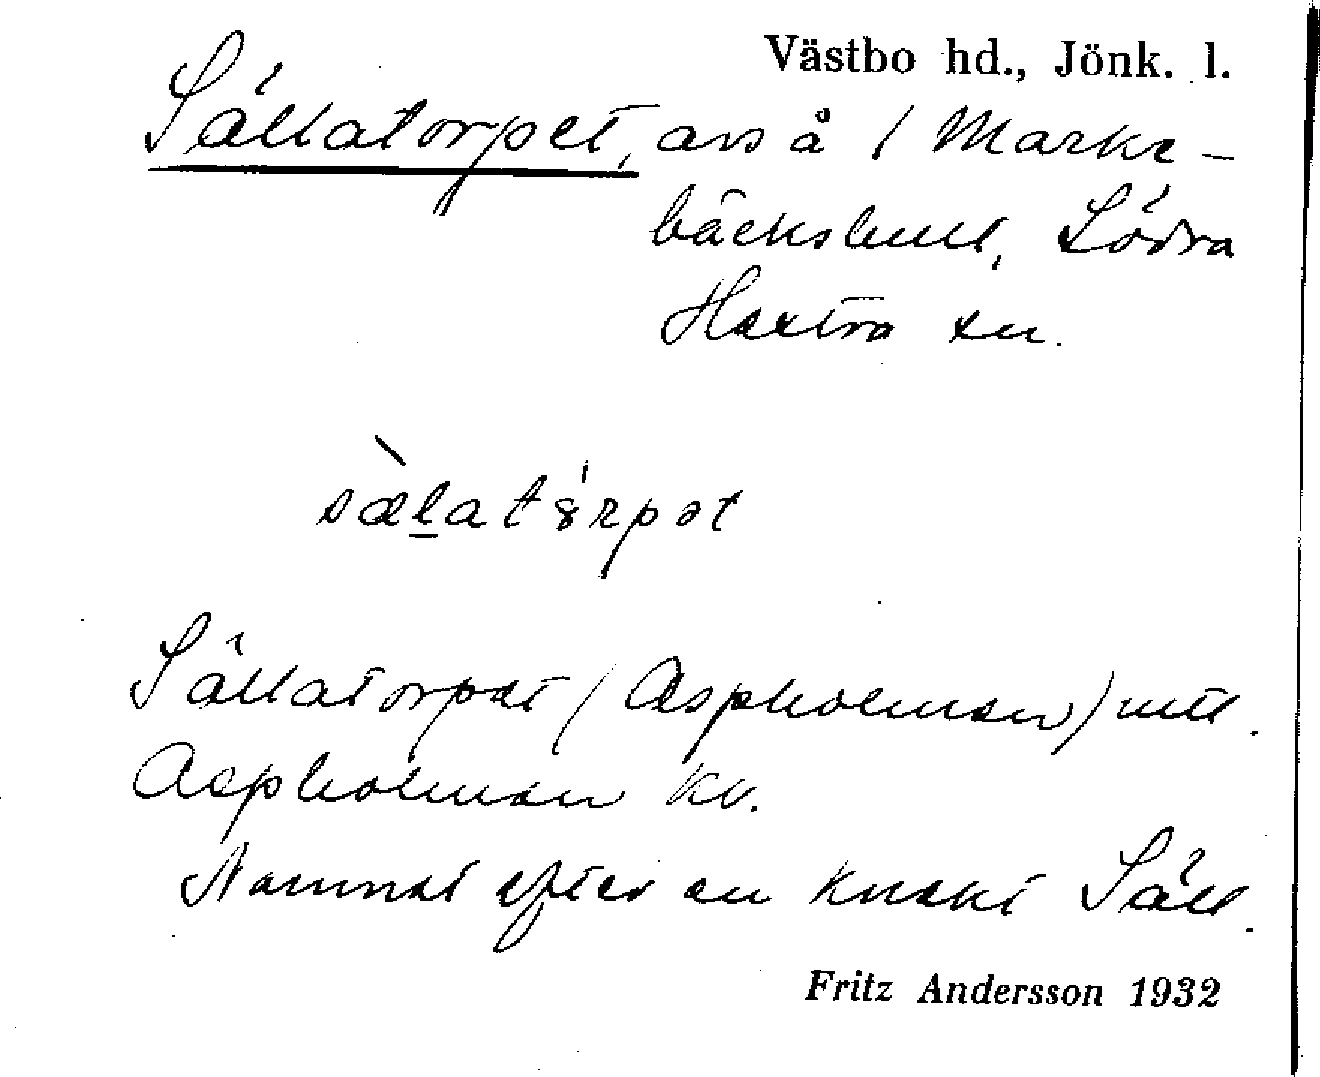 Västbo hd., Jönk. l.
Sällatorpet, avs å 1 Marke-
bäckshult, Södra
Hestra sn.
sælatərpət
Sällatorpet (Aspholmen) mtl.
Aspholmen kv.
Namnet efter en knekt Säll.
Fritz Andersson 1932